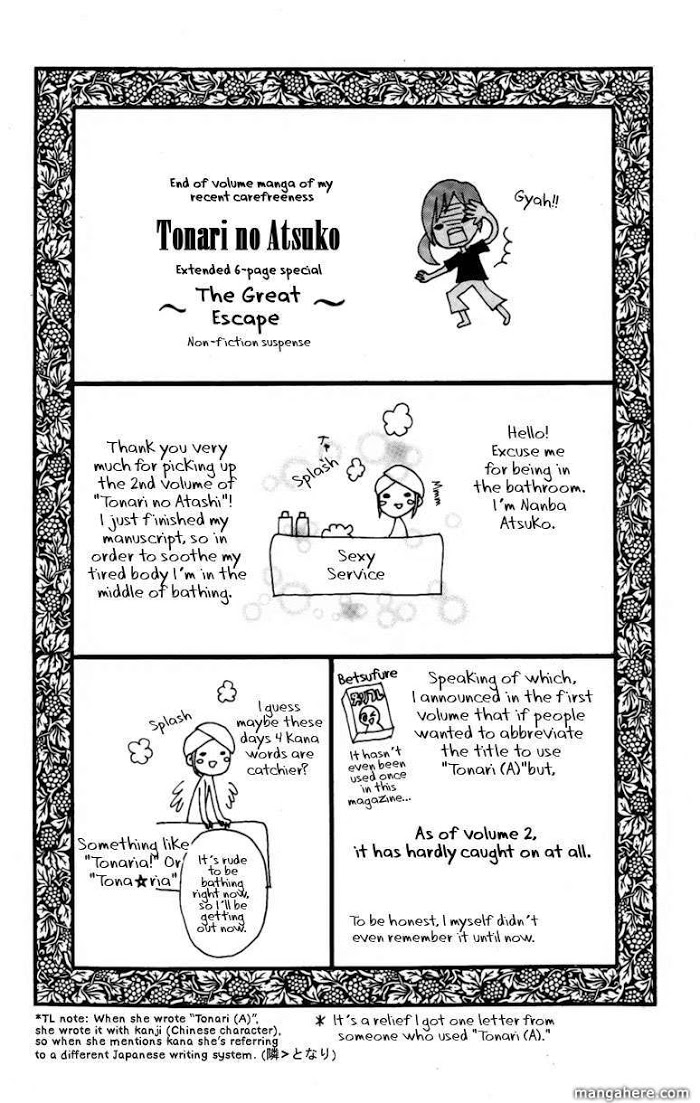 End of volume manga of my
recent carefreeness
Tonari no Atsuko
Extended 6-page special
~ The Great ~
Escape
Non-fiction suspense
Gyah!!
Hello!
Excuse me
for being in
the bathroom.
I'm Nanba
Atsuko.
Splash
Mmm
Sexy
Service
Thank you very
much for picking up
the 2nd volume of
"Tonari no Atashi"!
I just finished my
manuscript, so in
order to soothe my
tired body I'm in the
middle of bathing.
Speaking of which,
I announced in the first
volume that if people
wanted to abbreviate
the title to use
"Tonari (A)" but,
Betsufure
It hasn't
even been
used once
in this
magazine...
As of volume 2,
it has hardly caught on at all.
To be honest, I myself didn't
even remember it until now.
I guess
maybe these
days 4 Kana
words are
catchier?
Splash
Something like
"Tonaria!" Or
"Tona★ria"
It's rude
to be
bathing
right now,
so I'll be
getting
out now.
*TL note: When she wrote "Tonari (A)",
she wrote it with kanji (Chinese character),
so when she mentions kana she's referring
to a different Japanese writing system. (隣>となり)
* It's a relief I got one letter from
someone who used "Tonari (A)."
mangahere.com